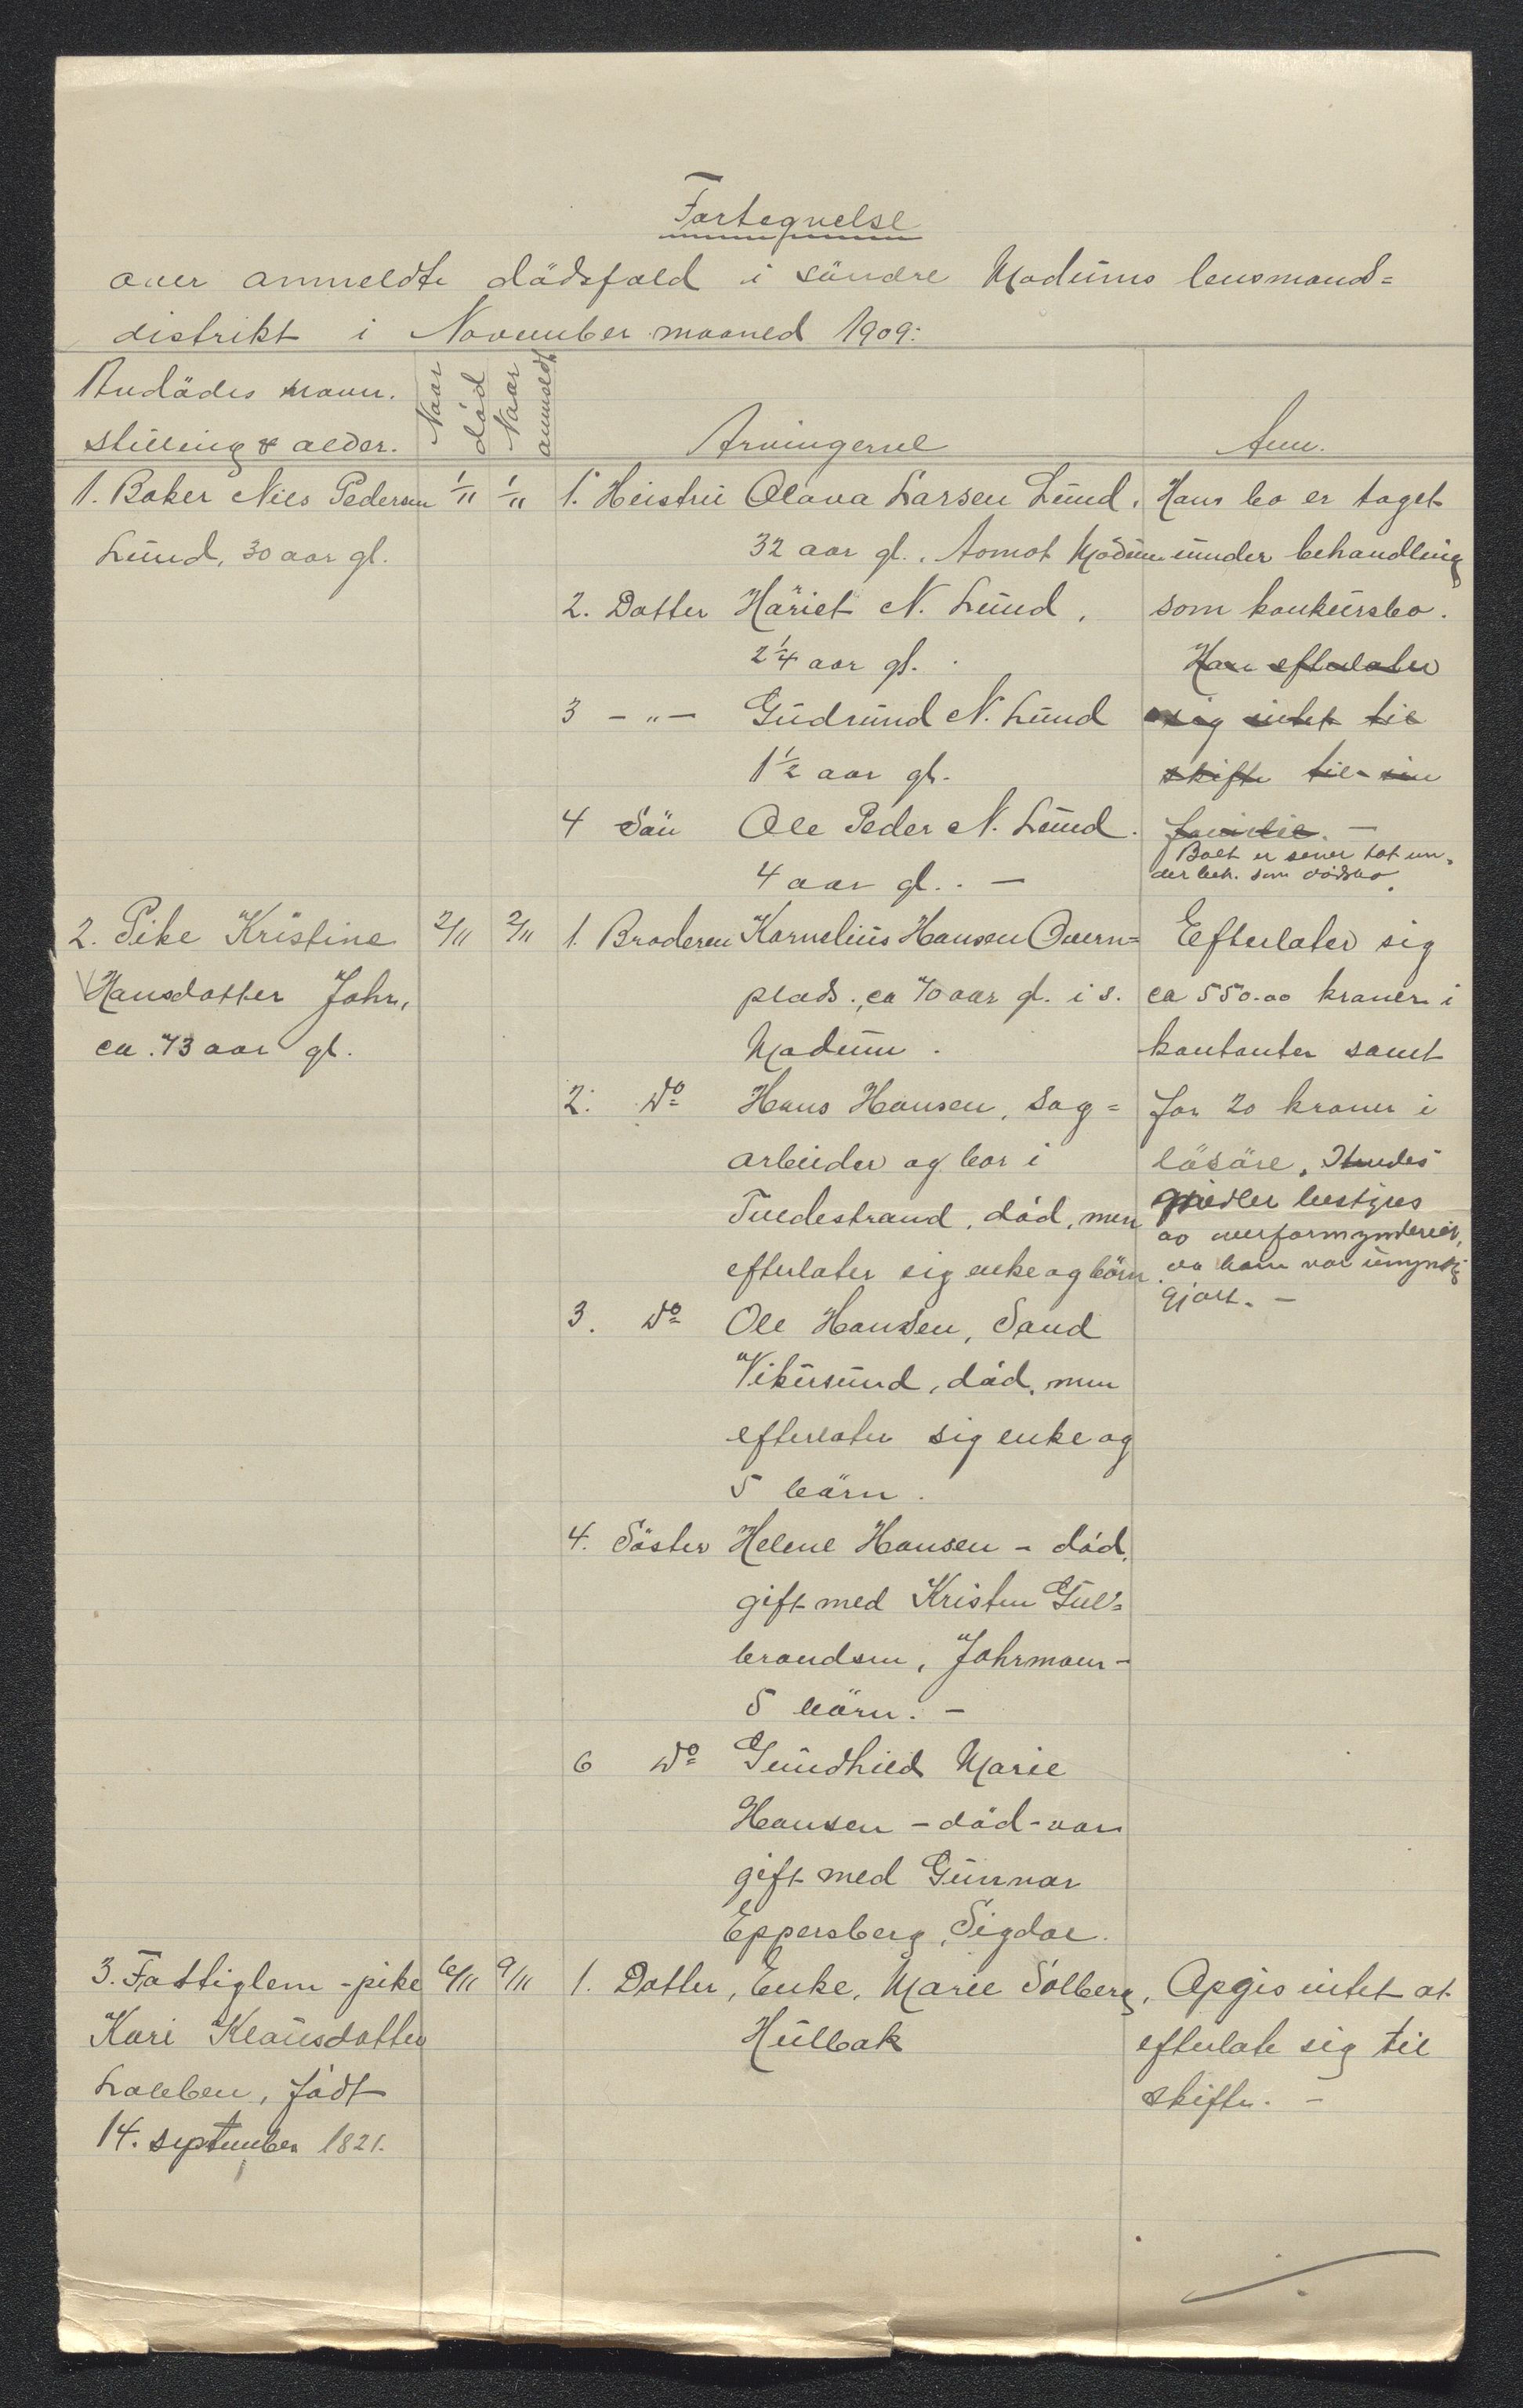 Fortegnelse
over anmeldte dödsfald i söndre Modums lensmands=
distrikt i November maaned 1909:
Avdödes navn.
stilling & alder.
Naar död
Naar anmeldt
Arvingerne
Anm.
1. Baker Nils Pedersen
Lund, 30 aar gl.
1/11
1/11
1. Heistru Olava Larsen Lund.
32 aar gl., Aomot Modum
2. Datter Häriet N. Lund.
2 1/4 aar gl.
3 - " - Gudrund N. Lund
1 1/2 aar gl.
4 Sön Ole Peder N. Lund.
4 aar gl. . -
Hans bo er taget
under behandling
som konkursbo.
Han efterlater
sig intet til
skifte til sin
familie. -
Boet er senere tat un-
der beh. som dödsbo.
2. Pike Kristine
Hansdatter Johr,
ca. 73 aar gl.
2/11
2/11
1. Broderen Kornelius Hansen Overn=
plads., ca 70 aar gl. i s.
Modum.
2. Do Hans Hansen, sag=
arbeider og bor i
Tvedestrand, död, men
efterlater sig enke og börn.
3. Do Ole Hansen, Sand
Vikersund, död, men
efterlater sig enke og
5 börn.
4. Söster Helene Hansen - död,
gift med Kristen Gul=
brandsen, Johrmoen -
5 börn. -
6 Do Gundhild Marie
Hansen - död - var
gift med Gunnar
Eppersberg, Sigdal.
Efterlater sig
ca 550.00 kroner i
kontanter samt
for 20 kroner i
lösöre. Hendes
midler bestyres
av overformynderiet,
da hun var umyndig
gjort. -
3. Fattiglem - pike
Kari Klausdatter
Lobben, födt
14. september 1821.
6/11
9/11
1. Datter, Enke, Marie Solberg,
Hulbak
Opgis intet at
efterlate sig til
skifte. -